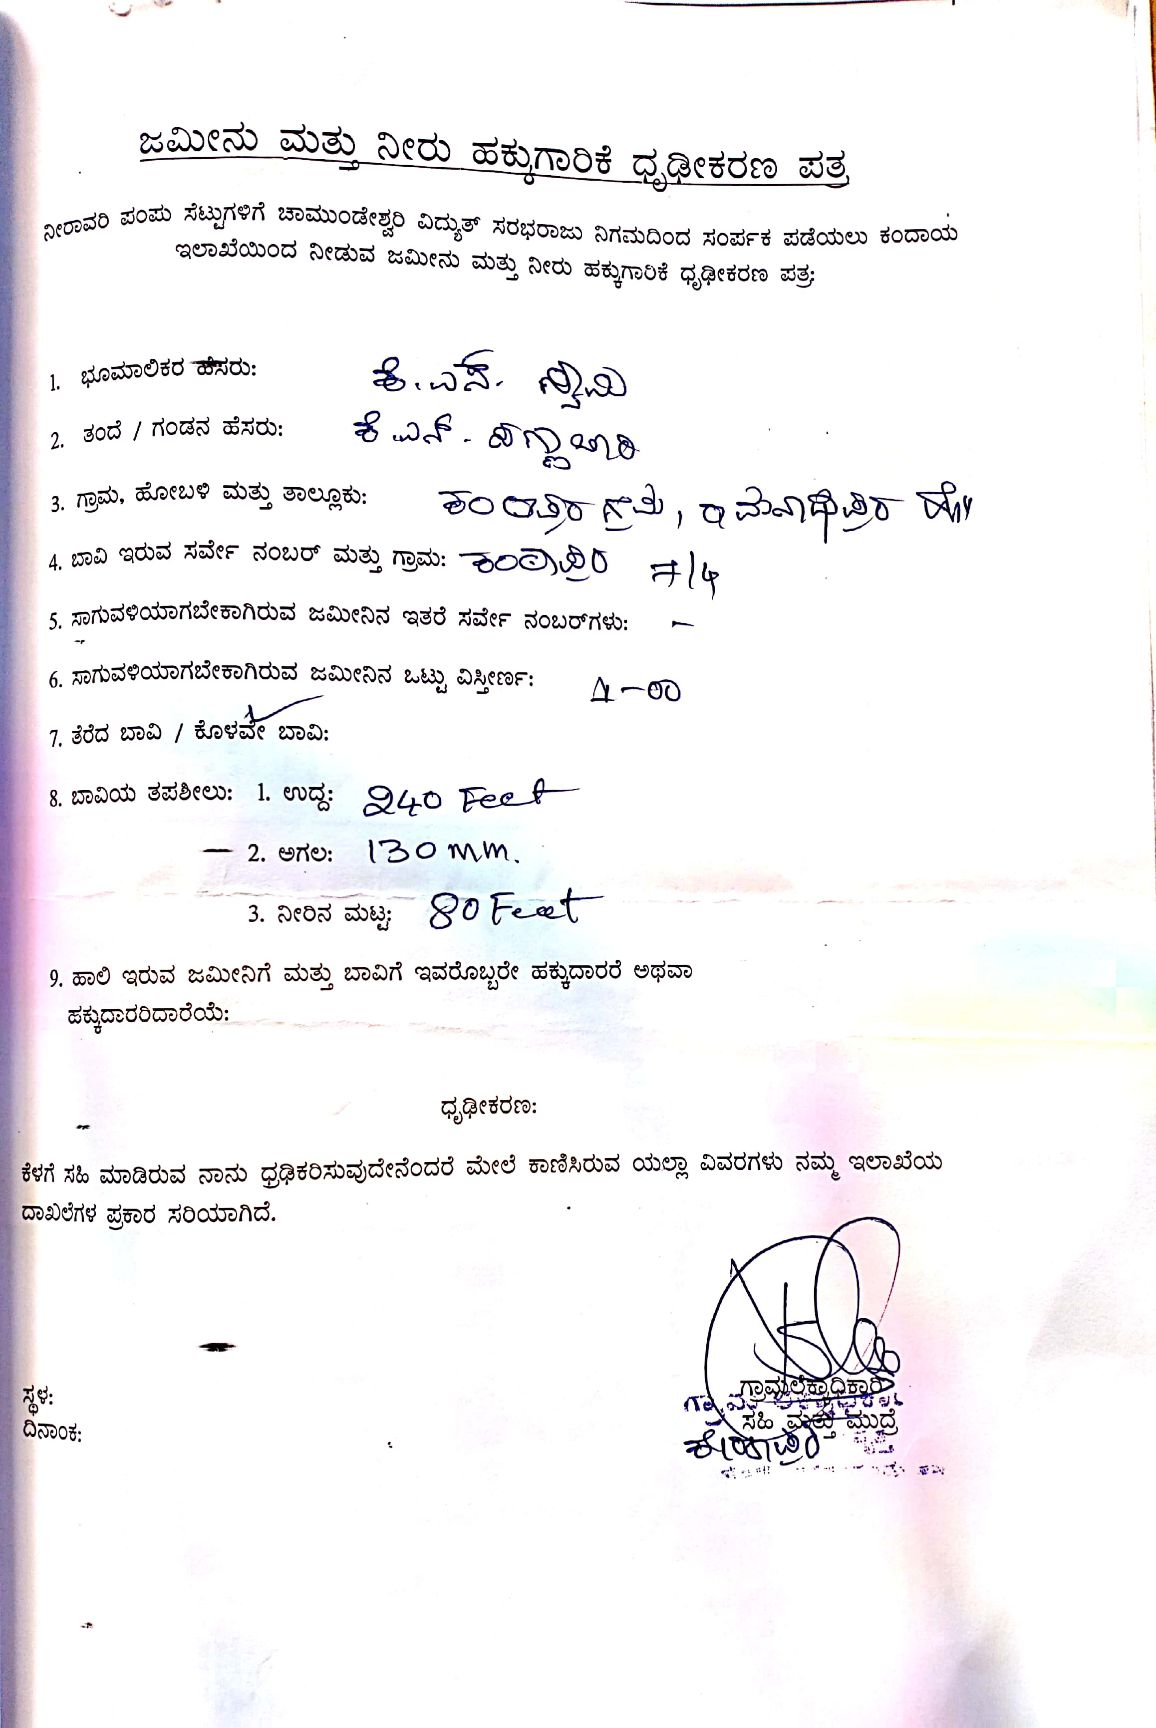 ಜಮೀನು ಮತ್ತು ನೀರು ಹಕ್ಕುಗಾರಿಕೆ ಧೃಢೀಕರಣ ಪತ್ರ
ನೀರಾವರಿ ಪಂಪು ಸೆಟ್ಟುಗಳಿಗೆ ಚಾಮುಂಡೇಶ್ವರಿ ವಿದ್ಯುತ್ ಸರಭರಾಜು ನಿಗಮದಿಂದ ಸಂರ್ಪಕ ಪಡೆಯಲು ಕಂದಾಯ
ಇಲಾಖೆಯಿಂದ ನೀಡುವ ಜಮೀನು ಮತ್ತು ನೀರು ಹಕ್ಕುಗಾರಿಕೆ ಧೃಢೀಕರಣ ಪತ್ರ:
1. ಭೂಮಾಲಿಕರ ಹೆಸರು: ಕೆ.ಎಸ್. ಸ್ವಾಮಿ
2. ತಂದೆ / ಗಂಡನ ಹೆಸರು: ಕೆ ಎನ್.
3. ಗ್ರಾಮ, ಹೋಬಳಿ ಮತ್ತು ತಾಲ್ಲೂಕು:
4. ಬಾವಿ ಇರುವ ಸರ್ವೇ ನಂಬರ್ ಮತ್ತು ಗ್ರಾಮ: 7/4
5. ಸಾಗುವಳಿಯಾಗಬೇಕಾಗಿರುವ ಜಮೀನಿನ ಇತರೆ ಸರ್ವೇ ನಂಬರ್‌ಗಳು: –
6. ಸಾಗುವಳಿಯಾಗಬೇಕಾಗಿರುವ ಜಮೀನಿನ ಒಟ್ಟು ವಿಸ್ತೀರ್ಣ:
7. ತೆರೆದ ಬಾವಿ / ಕೊಳವೇ ಬಾವಿ:
8. ಬಾವಿಯ ತಪಶೀಲು: 1. ಉದ್ದ: 240 Feet
2. ಅಗಲ: 130 mm.
3. ನೀರಿನ ಮಟ್ಟ: 80 Feet
9. ಹಾಲಿ ಇರುವ ಜಮೀನಿಗೆ ಮತ್ತು ಬಾವಿಗೆ ಇವರೊಬ್ಬರೇ ಹಕ್ಕುದಾರರೆ ಅಥವಾ
ಹಕ್ಕುದಾರರಿದಾರೆಯೆ:
ಧೃಢೀಕರಣ:
ಕೆಳಗೆ ಸಹಿ ಮಾಡಿರುವ ನಾನು ಧ್ರಢಿಕರಿಸುವುದೇನೆಂದರೆ ಮೇಲೆ ಕಾಣಿಸಿರುವ ಯಲ್ಲಾ ವಿವರಗಳು ನಮ್ಮ ಇಲಾಖೆಯ
ದಾಖಲೆಗಳ ಪ್ರಕಾರ ಸರಿಯಾಗಿದೆ.
ಗ್ರಾಮಲೆಕ್ಕಾಧಿಕಾರಿ
ಸ್ಥಳ:
ಸಹಿ ಮತ್ತು ಮುದ್ರೆ
ದಿನಾಂಕ: